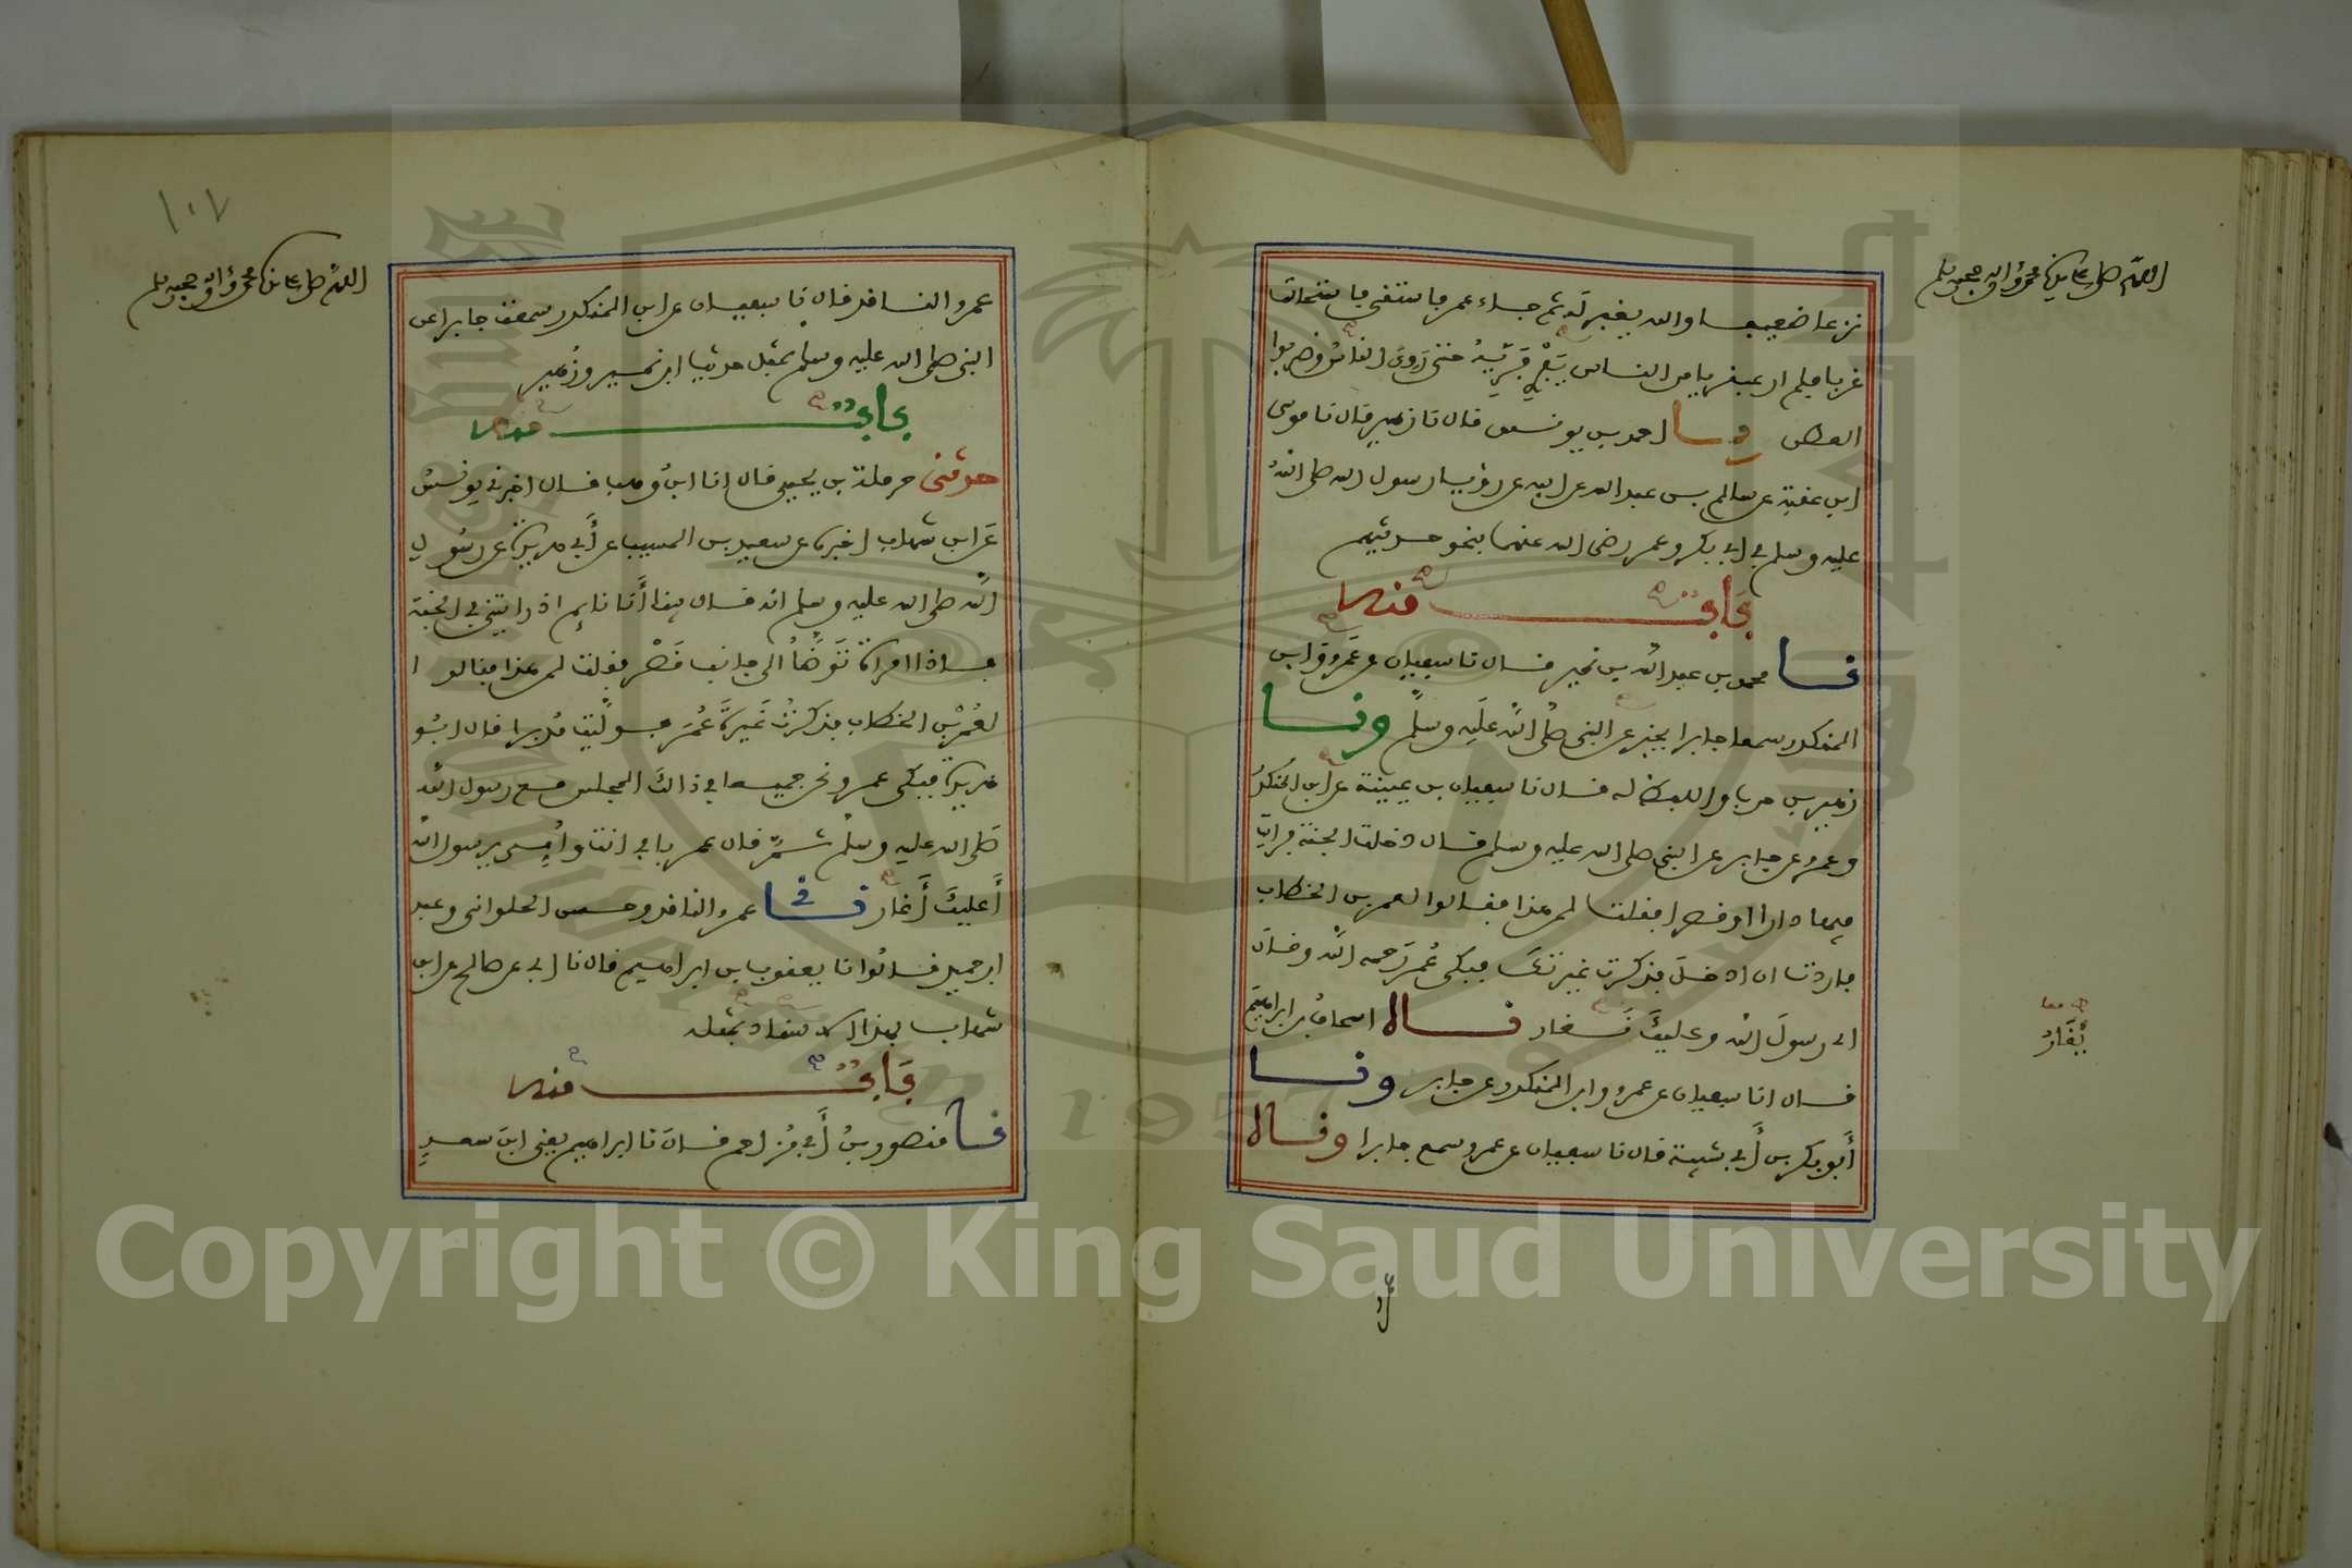 اللهم صل على سيدنا محمد وآله وصحبه وسلم
نزعا ضعيفا والله يغفر له ثم جاء عمر فاستقى فاستحالت
غربا فلم ار عبقريا من الناس يَفْرِي فَرِيَّهُ حتى رَوِيَ الناسُ وضربوا
العطن ونا احمد بن يونس قال نا زهير قال نا موسى
ابن عقبة عن سالم بن عبد الله عن ابيه عن رؤيا رسول الله صلى الله
عليه وسلم في ابي بكر وعمر رضى الله عنهما بنحو حديثهم
باب منه
نا محمد بن عبد الله بن نمير قال نا سفيان عن عَمرو وابن
المنكدر سمعا جابرا يخبر عن النبى صلى الله عليه وسلم ونا
زهير بن حرب واللفظ له قال نا سفيان بن عيينة عن ابن المنكدر
وعمرو عن جابر عن النبى صلى الله عليه وسلم قال دخلت الجنة فرايت
فيها دارا او قصرا فقلت لمن هذا فقالوا لعمر بن الخطاب
فاردت ان ادخل فذكرت غيرتك فبكى عُمر رَحمه الله وقال
اى رسولَ الله وعليكَ يُغار ناه اسحاق بن ابراهيم
قال انا سفيان عن عمرو وابن المنكدر عن جابر ونا
أبو بكر بن أبي شيبة قال نا سفيان عن عمرو سمع جابرا وناه
معا
يُغَارُ
١٠٧
اللهم صل على سيدنا محمد وآله وصحبه وسلم
عمرو الناقد قال نا سفيان عن ابن المنكدر سمعت جابرا عن
النبى صلى الله عليه وسلم بمثل حديث ابن نمير وزُهير
باب منه
حدثنى حرملة بن يحيى قال انا ابنُ وهب قال اخبرنى يونسُ
عَن ابن شهاب اخبره عن سعيد بن المسيب عن أبي هريرة عن رسول
الله صلى الله عليه وسلم انه قال بينا أَنا نايم اذ رايتني في الجنة
فاذا امراة تَوَضَّأُ الى جانب قَصْر فقلت لمن هذا فقالوا
لعُمَر بْنِ الخطاب فذكرتُ غَيرةَ عُمَرَ فولّيت مُدبرا قال ابُو
هريرة فبكى عمر ونحن جميعا في ذالكَ المجلس مع رسول الله
صَلى الله عليه وسلم ثمّ قال عمر بابي انت وأمي يرسول الله
أَعليكَ أَغار نا عمرو الناقد وحسن الحلوانى وعبد
ابن حميد قالُوا نا يعقوب بن ابراهيم قال نا ابي عن صالح عن ابن
شهاب بهذا الاسناد بمثله
باب منه
نا منصور بنُ أبي مُزاحم قال نا ابراهيم يعنى ابنَ سعدٍ